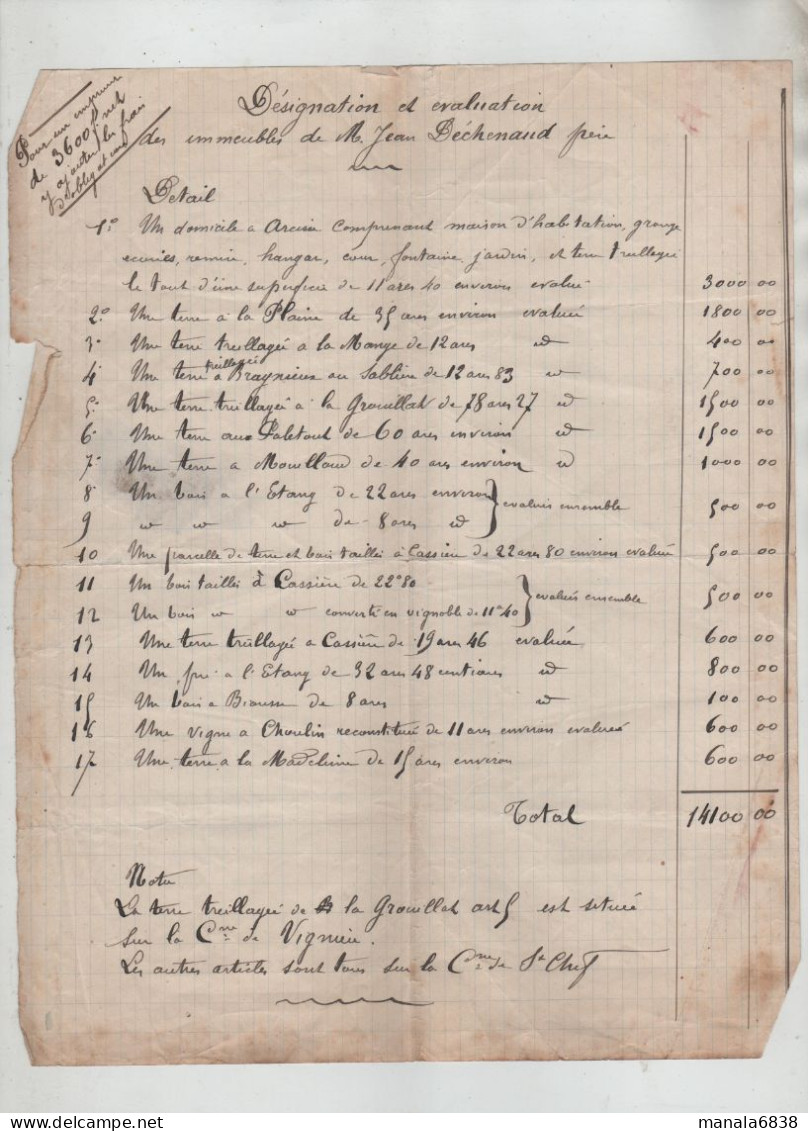 Pour un emprunt
de 3600 f net
y ajouter les frais
d'oblig et
Désignation et evaluation
des immeubles de M. Jean Déchenaud père
Detail
1° Un domicile a Arcisse comprenant maison d'habitation, grange
ecuries, remise, hangar, cour, fontaine, jardin, et terre treillagée
le tout d'une superficie de 11 ares 40 environ evalué 3000 00
2° Une terre a la Plaine de 35 ares environ evaluée 1800 00
3° Une terre treillagée a la Mange de 12 ares id 400 00
4° Une terre treillagée a Braynieux au Sablière de 12 ares 83 id 700 00
5° Une terre treillagée a la Grouillat de 78 ares 27 id 1500 00
6° Une terre aux Paletout de 60 ares environ id 1500 00
7° Une terre a Mouilloud de 40 ares environ id 1000 00
8° Un bois a l'Etang de 22 ares environ } evalués ensemble 500 00
9 id id id de 8 ares id
10 Une parcelle de terre et bois taillis à Cassière de 22 ares 80 environ evaluée 500 00
11 Un bois taillis à Cassière de 22a 80 } evalués ensemble 500 00
12 Un bois id id converti en vignoble de 11a 40
13 Une terre treillagée a Cassière de 19 ares 46 evaluée 600 00
14 Un pré a l'Etang de 32 ares 48 centiares id 800 00
15 Un bois a Biousse de 8 ares id 100 00
16 Une vigne a Choulin reconstituée de 11 ares environ evaluée 600 00
17 Une terre a la Madeleine de 15 ares environ 600 00
Total 14100 00
Nota
La terre treillagée de la Grouillat art 5 est située
sur la Cne de Vignieu.
Les autres articles sont tous sur la Cne de St Chef
manala6838